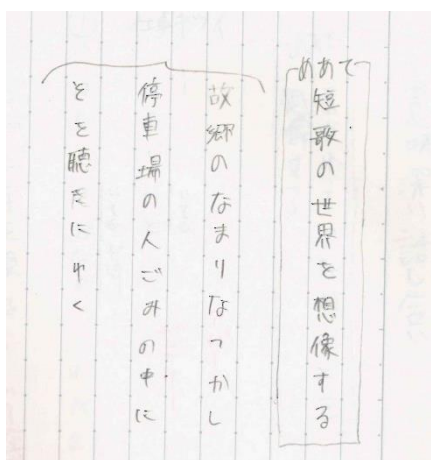 めあて
短歌の世界を想像する
故郷のなまりなつかし
停車場の人ごみの中に
そを聴きにゆく